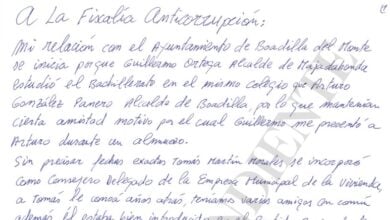 A La Fiscalía Anticorrupción:
Mi relación con el Ayuntamiento de Boadilla del Monte
se inicia porque Guillermo Ortega Alcalde de Majadahonda
estudió el Bachillerato en el mismo Colegio que Arturo
González Panero Alcalde de Boadilla, por lo que mantenian
cierta amistad motivo por el cual Guillermo me presentó a
Arturo durante un almuerzo.
Sin precisar fechas exactas Tomás Martín Morales se incorporó
como Consejero Delegado de la Empresa Municipal de la Vivienda,
a Tomás le conocí años atrás, teniamos varios amigos en común
además él estaba bien